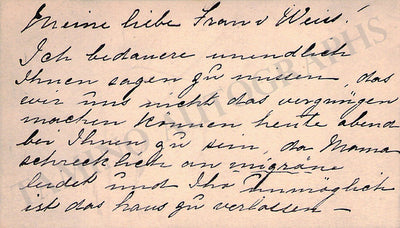 Meine liebe Frau v Weiss!
Ich bedauere unendlich
Ihnen sagen zu müssen, das
wir uns nicht das vergnügen
machen können heute abend
bei Ihnen zu sein, da Mama
schrecklich an migräne
leidet und Ihr unmöglich
ist das haus zu verlassen –
TAMINO AUTOGRAPHS